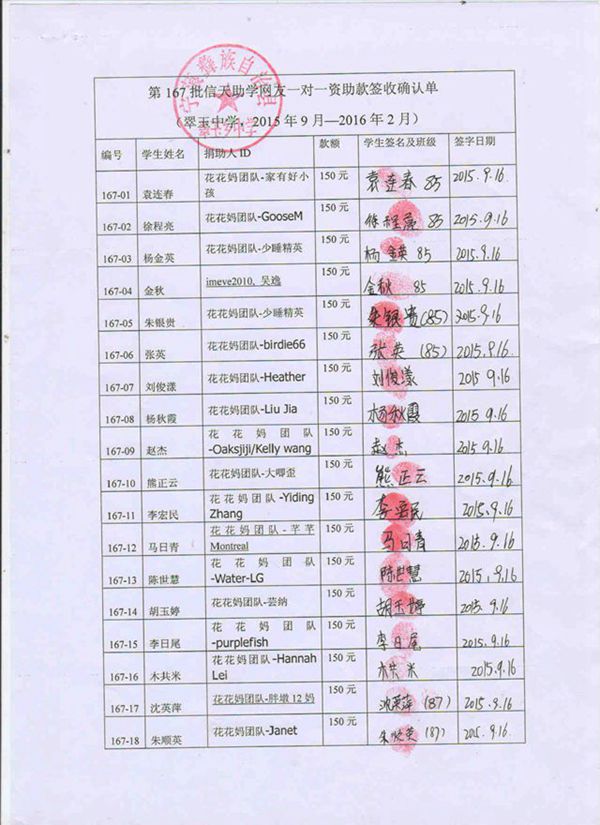 第 167 批信天助学网友一对一资助款签收确认单
(翠玉中学，2015 年 9 月—2016 年 2 月)
编号 学生姓名 捐助人 ID 款额 学生签名及班级 签字日期
167-01 袁连春 花花妈团队-家有好小孩 150 元 袁连春 85 2015.9.16
167-02 徐程亮 花花妈团队-GooseM 150 元 徐程亮 85 2015.9.16
167-03 杨金英 花花妈团队-少睡精英 150 元 杨金英 85 2015.9.16
167-04 金秋 imeve2010, 吴逸 150 元 金秋 85 2015.9.16
167-05 朱银贵 花花妈团队-少睡精英 150 元 朱银贵(85) 2015.9.16
167-06 张英 花花妈团队-birdie66 150 元 张英 (85) 2015.9.16
167-07 刘俊漾 花花妈团队-Heather 150 元 刘俊漾 2015 9.16
167-08 杨秋霞 花花妈团队-Liu Jia 150 元 杨秋霞 2015.9.16
167-09 赵杰 花花妈团队-Oaksjiji/Kelly wang 150 元 赵杰 2015.9.16
167-10 熊正云 花花妈团队-大唧歪 150 元 熊正云 2015.9.16
167-11 李宏民 花花妈团队-Yiding Zhang 150 元 李宏民 2015.9.16
167-12 马日青 花花妈团队-芊芊 Montreal 150 元 马日青 2015.9.16
167-13 陈世慧 花花妈团队-Water-LG 150 元 陈世慧 2015.9.16
167-14 胡玉婷 花花妈团队-芸纳 150 元 胡玉婷 2015.9.16
167-15 李日尾 花花妈团队-purplefish 150 元 李日尾 2015.9.16
167-16 木共米 花花妈团队-Hannah Lei 150 元 木共米 2015.9.16
167-17 沈英萍 花花妈团队-胖墩 12 妈 150 元 沈英萍 (87) 2015.9.16
167-18 朱顺英 花花妈团队-Janet 150 元 朱顺英 (87) 2015.9.16